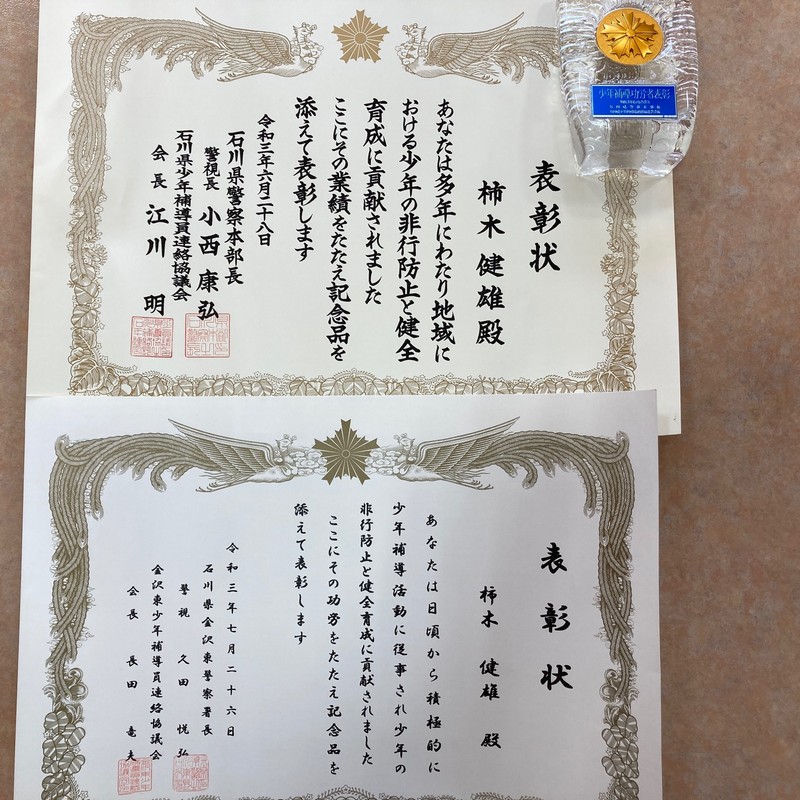 表彰状
柿木健雄殿
あなたは多年にわたり地域に
おける少年の非行防止と健全
育成に貢献されました
ここにその業績をたたえ記念品を
添えて表彰します
令和三年六月二十八日
石川県警察本部長
警視長 小西康弘
石川県少年補導員連絡協議会
会長 江川明
少年補導功労者表彰
表彰状
柿木 健雄 殿
あなたは日頃から積極的に
少年補導活動に従事され少年の
非行防止と健全育成に貢献されました
ここにその功労をたたえ記念品を
添えて表彰します
令和三年七月二十六日
石川県金沢東警察署長
警視 久田 悦弘
金沢東少年補導員連絡協議会
会長 長田 竜夫